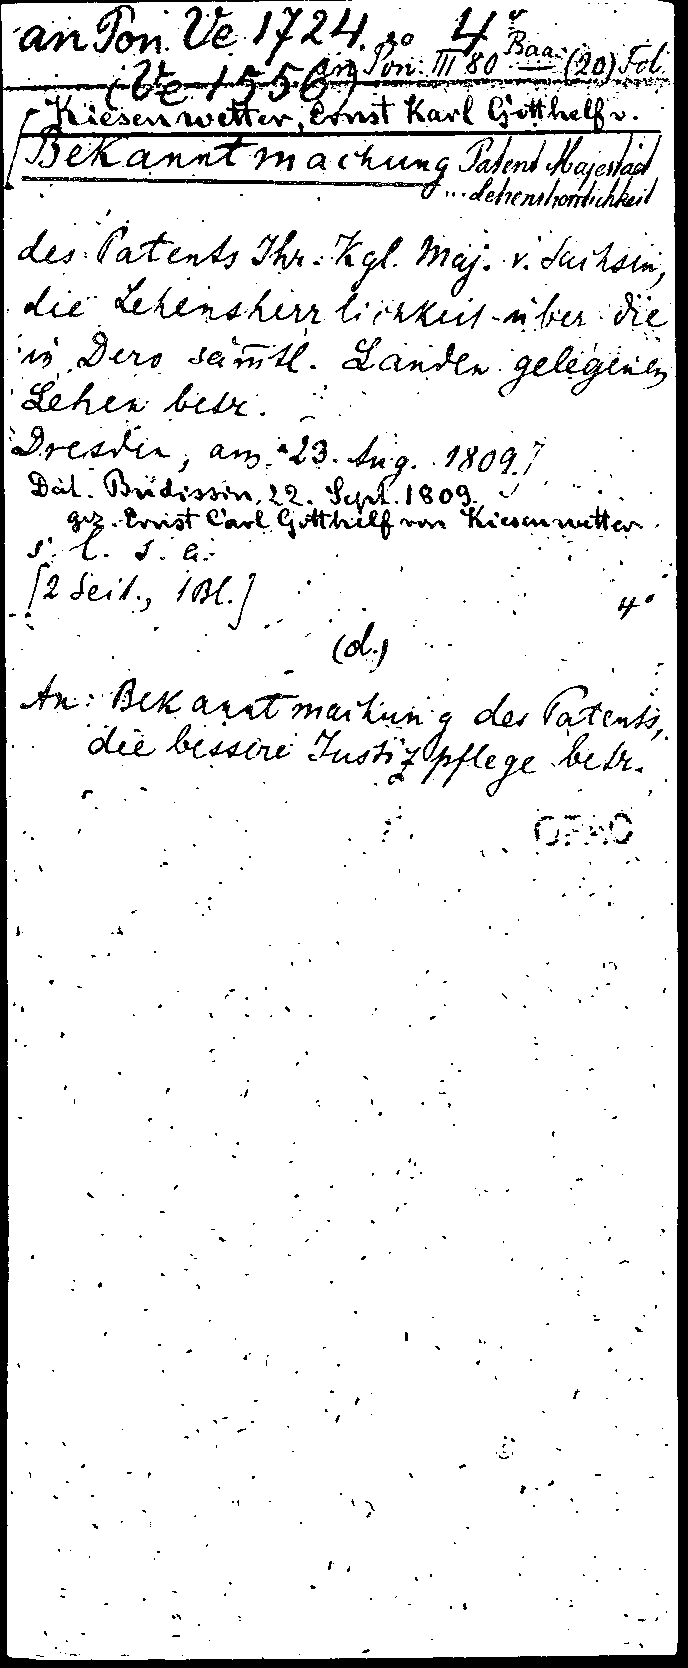 an Pon. Ve 1724. 4°
(Ve 1556) an Pon. III 80 Baa. (20) Fol.
[Kiesenwetter, Ernst Karl Gotthelf v.
Bekanntmachung Patent Majestät
... Lehensherrlichkeit
des Patents Ihr. Kgl. Maj. v. Sachsen,
die Lehensherrlichkeit über die
in Dero sämtl. Landen gelegenen
Lehen betr.
Dresden, am 23. Aug. 1809.]
Dat. Budissin, 22. Sept. 1809.
gez. Ernst Carl Gotthelf von Kiesenwetter
s. l. s. a.
[2 Seit., 1 Bl.] 4°
(d.)
An: Bekanntmachung des Patents,
die bessere Justizpflege betr.